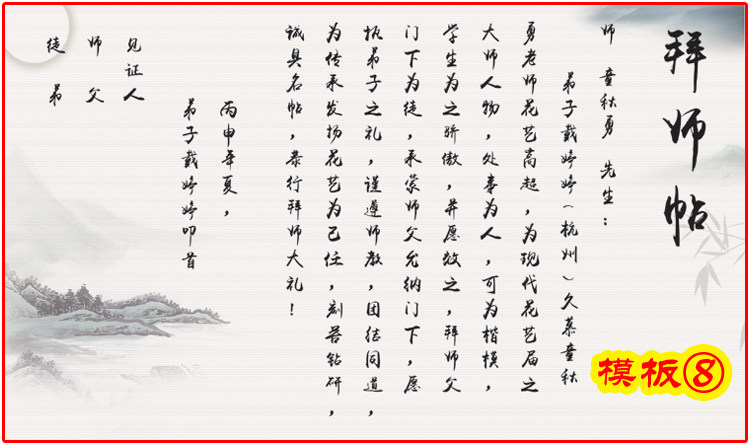 拜师帖
师 童秋勇 先生：
弟子戴婷婷（杭州）久慕童秋
勇老师花艺高超，为现代花艺届之
大师人物，处事为人，可为楷模，
学生为之骄傲，并愿效之，拜师父
门下为徒，承蒙师父允纳门下，愿
执弟子之礼，谨遵师教，团结同道，
为传承发扬花艺为己任，刻苦钻研，
诚具名帖，恭行拜师大礼！
丙申年夏，
弟子戴婷婷叩首
见证人
师父
徒弟
模板⑧